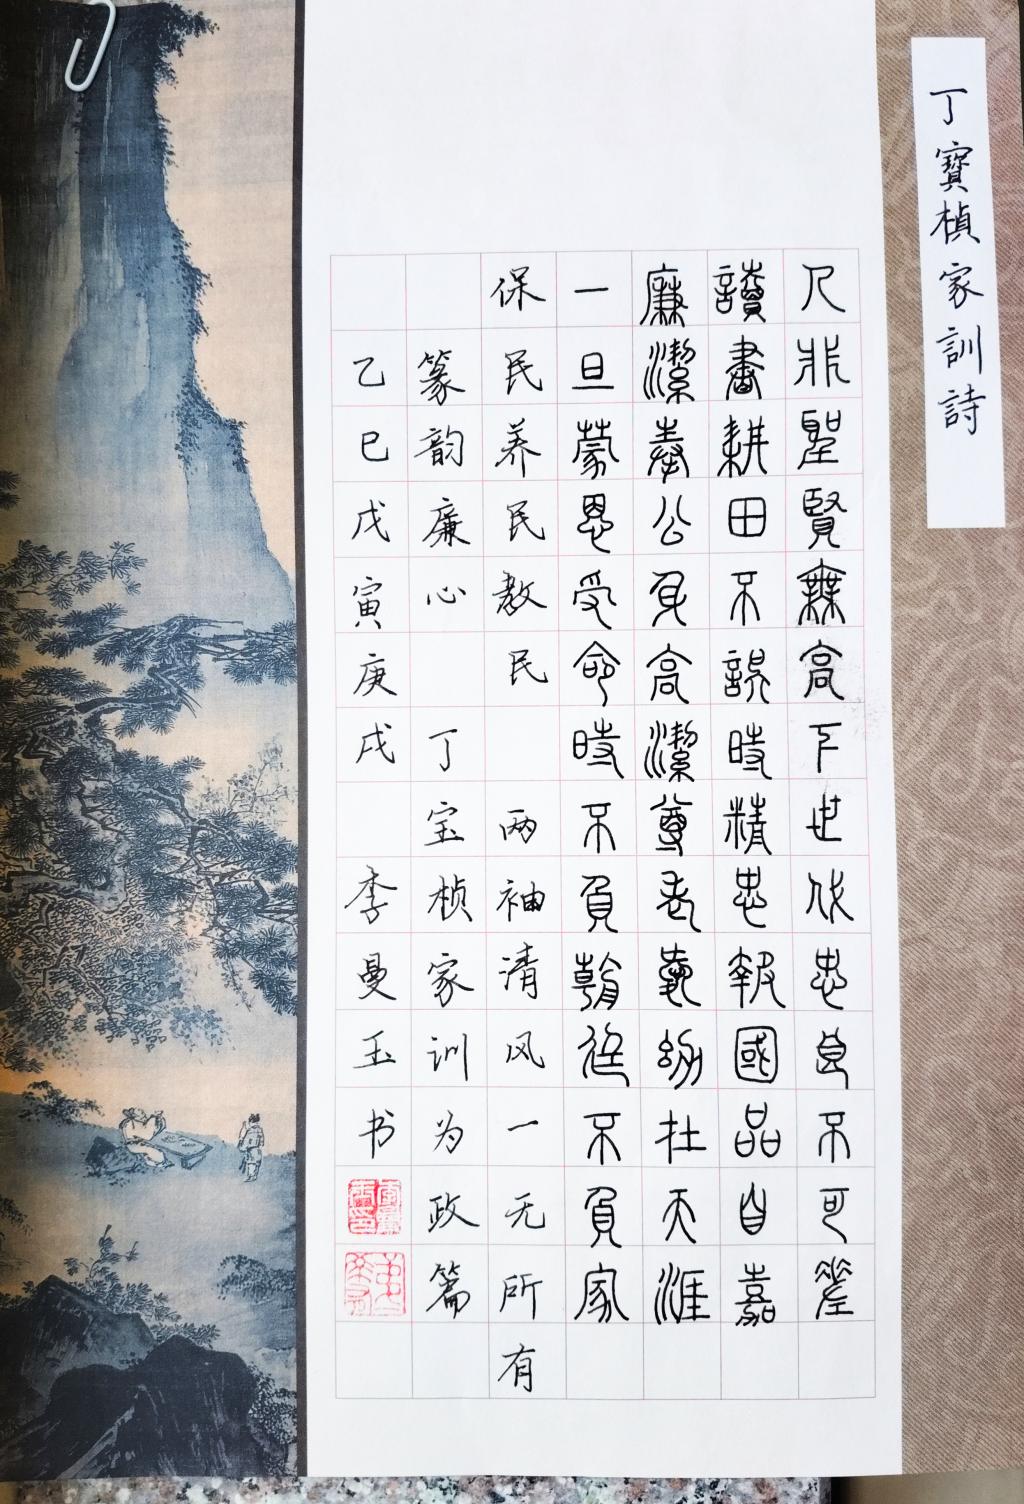 丁寶楨家訓詩
人非聖賢無高下世代忠良不可差
讀書耕田不誤時精忠報國品自嘉
廉潔奉公身高潔尊老愛幼在天涯
一旦蒙恩受命時不負朝廷不負家
保民养民教民 两袖清风一无所有
篆韵廉心 丁宝桢家训为政篇
乙巳戊寅庚戌 李曼玉书